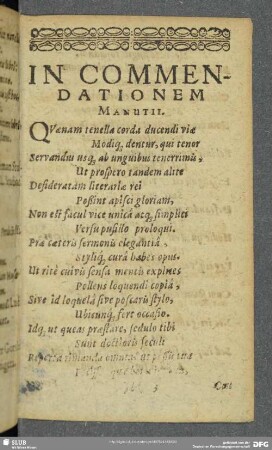 IN COMMEN-
DATIONEM
MANUTII.
QVænam tenella corda ducendi viæ
Modiq; dentur, qui tenor
Servandus usq; ab unguibus tenerrimis,
Ut prospero tandem alite
Desideratam literariæ rei
Possint apisci gloriam,
Non est facul vice unicâ acq; simplici
Versu pusillo proloqui.
Præ cæteris sermonis elegantiâ,
Styliq; curâ habes opus.
Ut ritè cuivis sensa mentis explices
Pollens loquendi copiâ,
Sive id loquelâ sive poscaris stylo,
Ubicunq; fert occasio.
Idq; ut queas præstare, sedulo tibi
Sunt doctioris seculi
3
SLUB
DFG